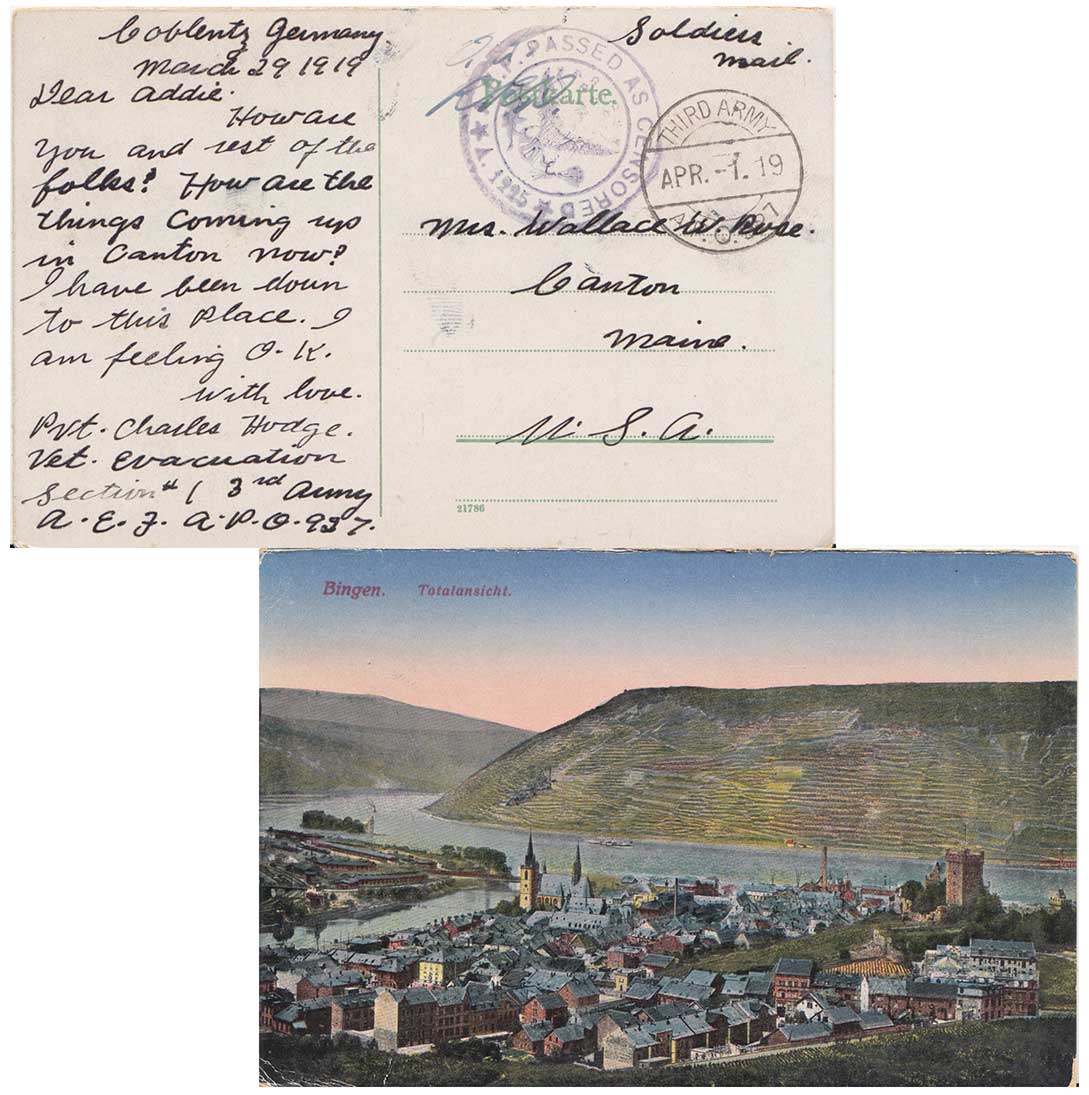 Coblentz Germany
March 29 1919
Dear Addie.
How are
You and rest of the
folks? How are the
things Coming up
in Canton now?
I have been down
to this Place. I
am feeling O.K.
with love.
Pvt. Charles Hodge.
Vet. Evacuation
Section #1 3rd Army
A.E.F. A.P.O. 937.
Soldiers
mail.
Postkarte.
PASSED AS CENSORED
A. 1995
THIRD ARMY
APR.-1.19
A.P.O. 927
Mrs. Wallace W. Rose.
Canton
Maine.
U. S. A.
21786
Bingen. Totalansicht.